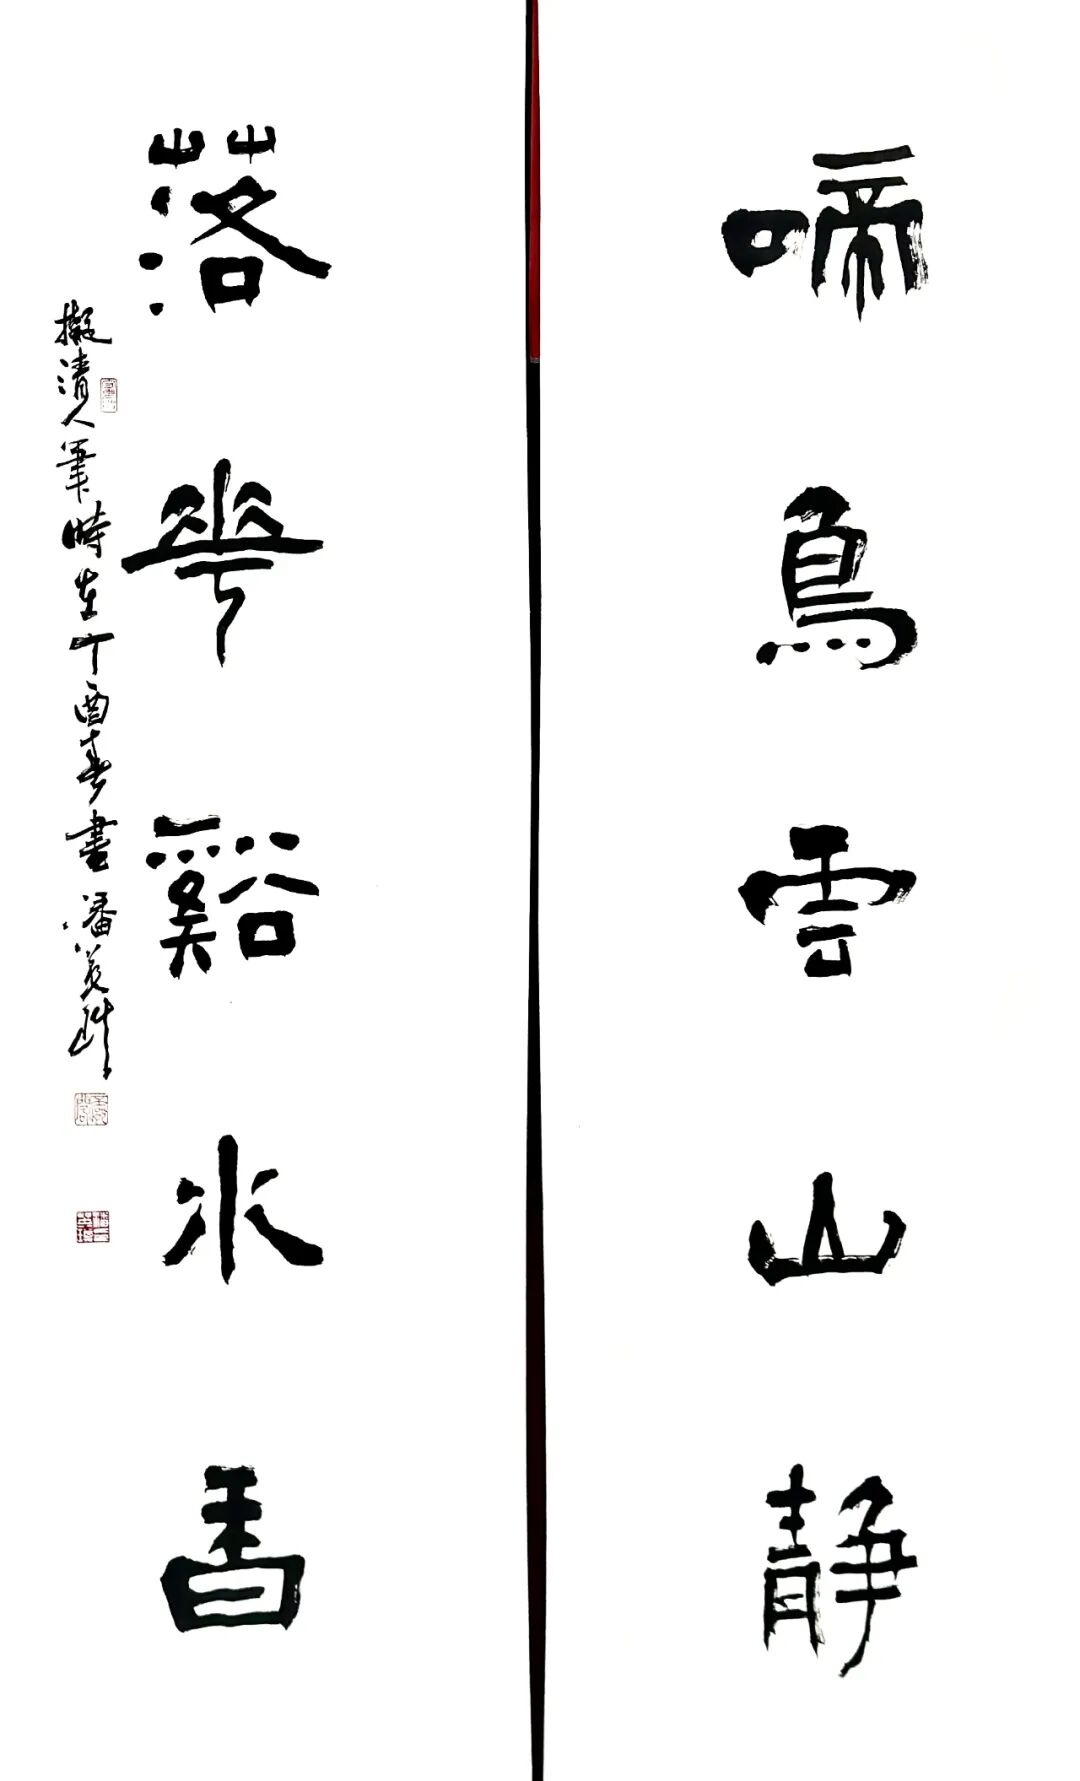 啼鳥雲山静
落花谿水香
擬清人筆時在丁酉春書潘